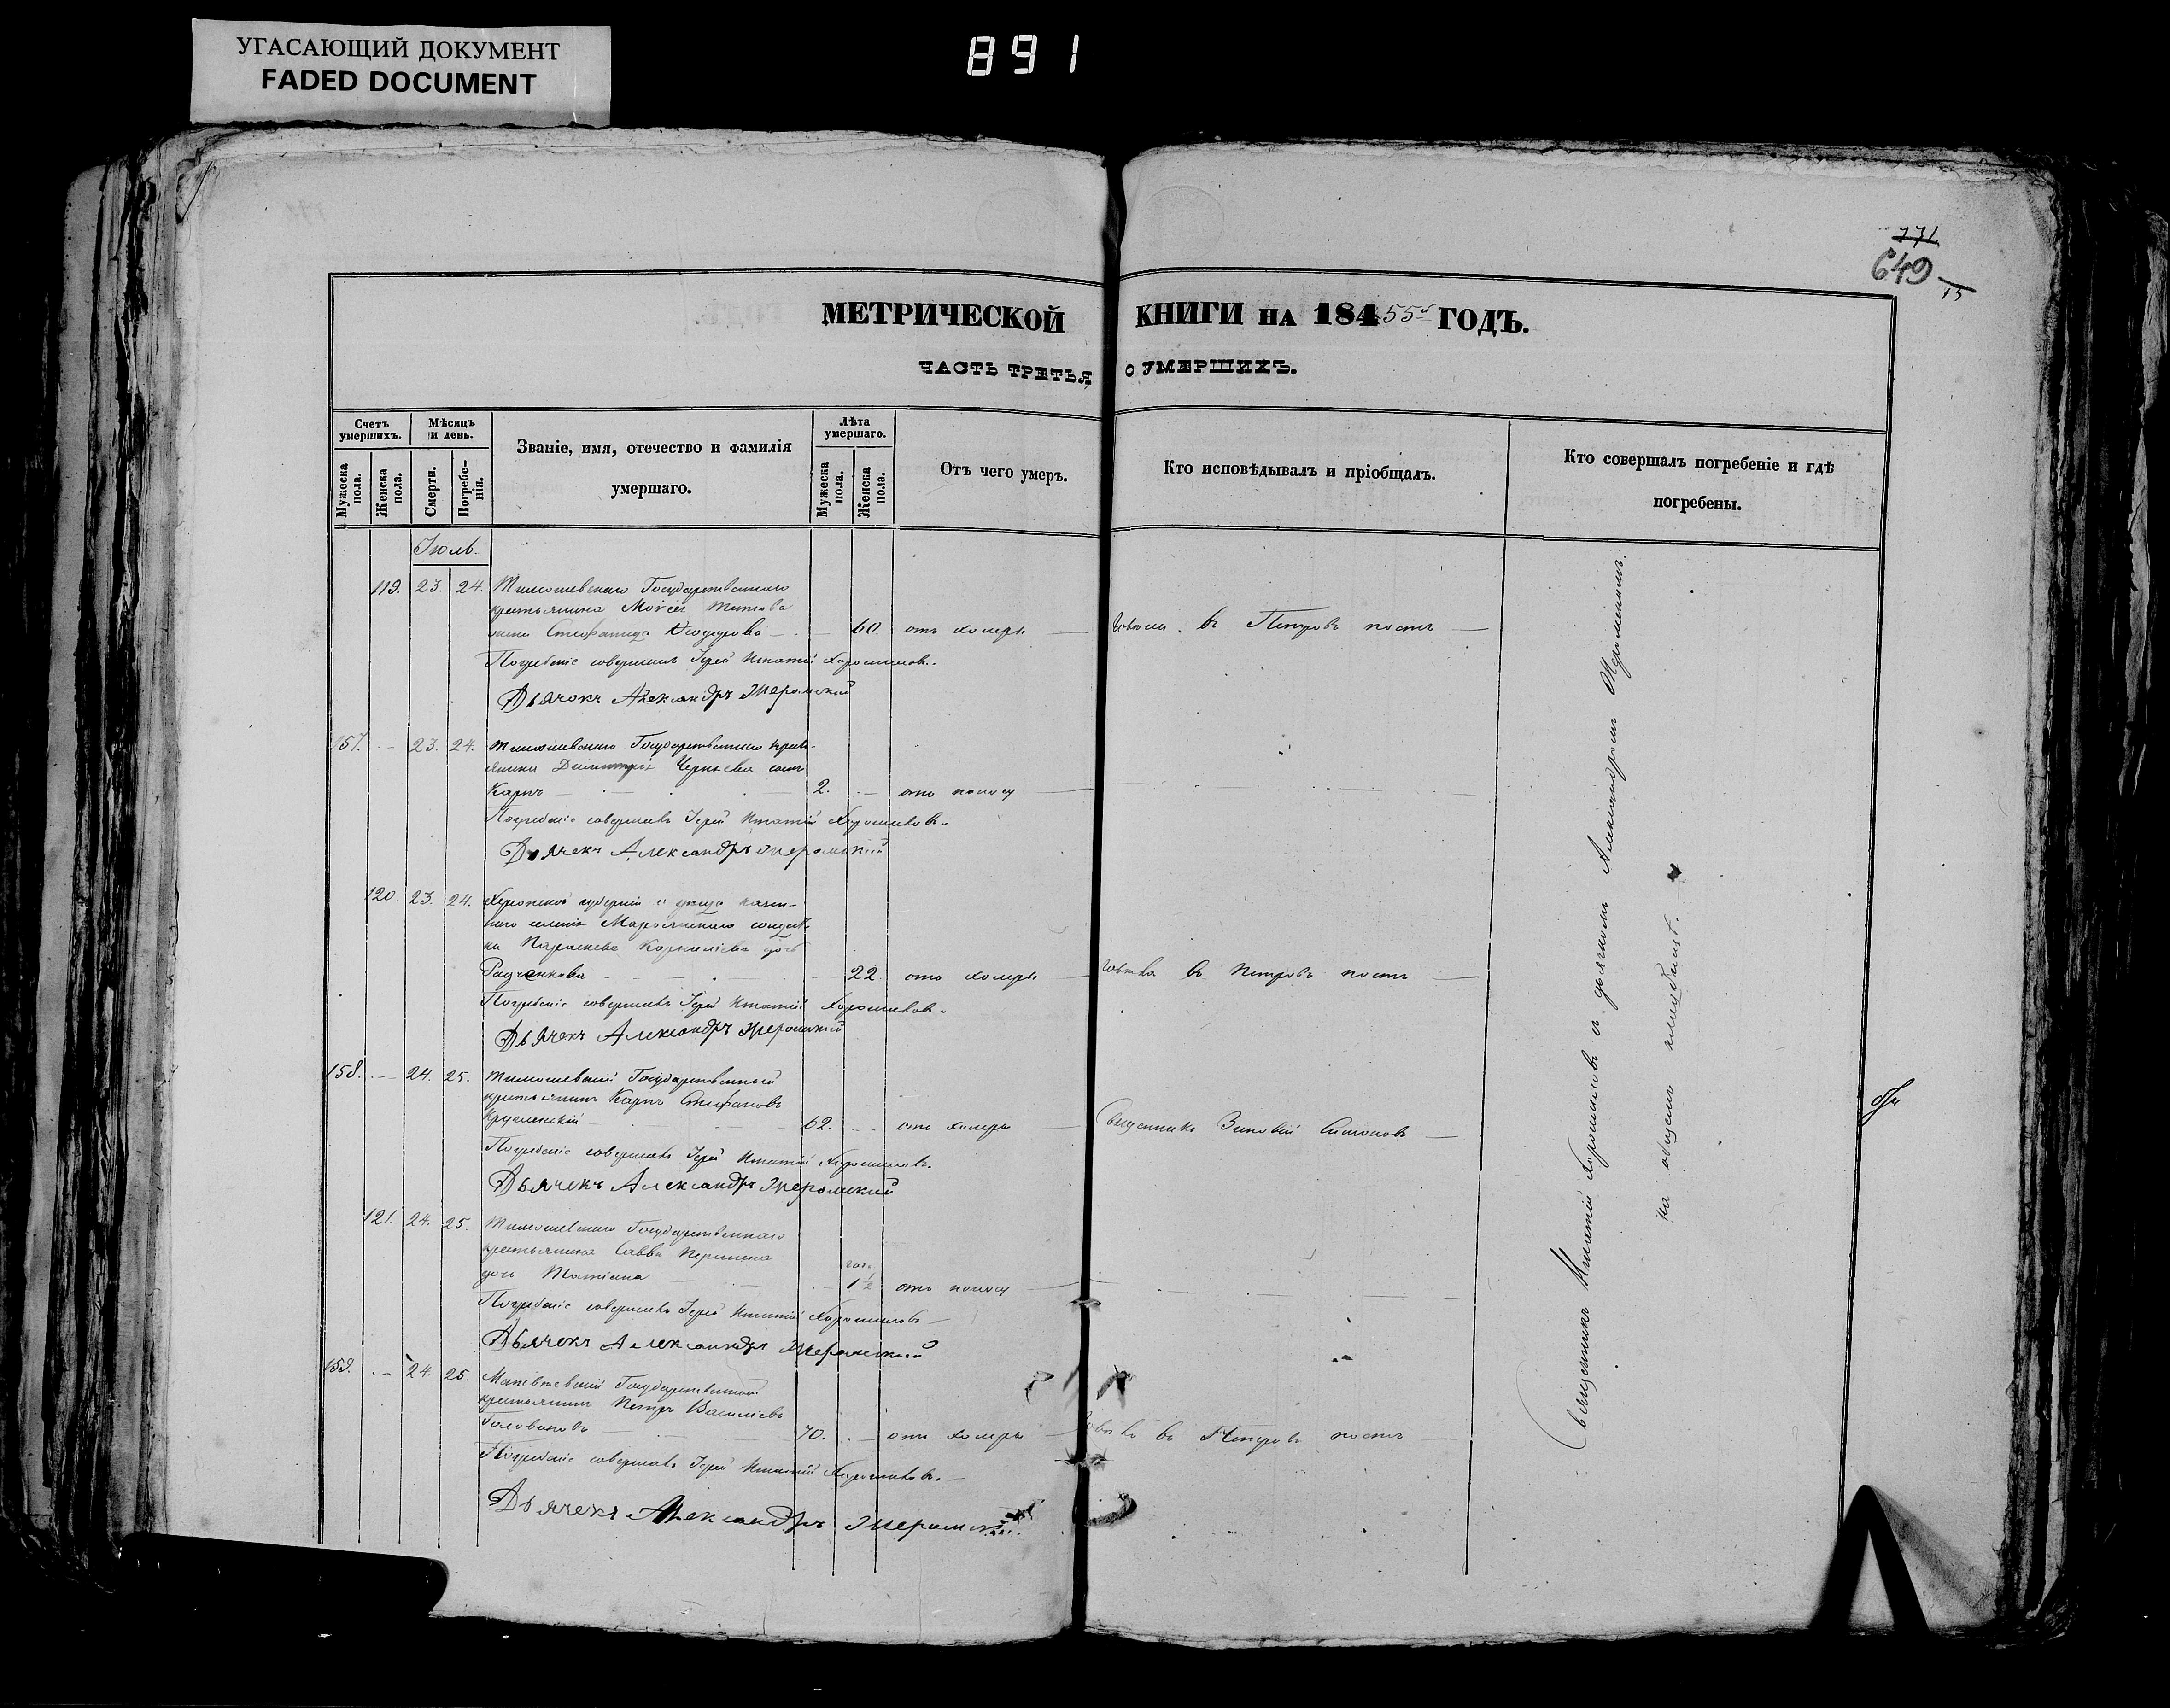 УГАСАЮЩИЙ ДОКУМЕНТ
FADED DOCUMENT
891
771.
649
15
МЕТРИЧЕСКОЙ КНИГИ НА 184 55й ГОДЪ.
ЧАСТЬ ТРЕТЬЯ О УМЕРШИХЪ.
Счетъ умершихъ.
Мужеска пола.
Женска пола.
Мѣсяцъ и день.
Смерти.
Погребенія.
Званіе, имя, отечество и фамилія умершаго.
Лѣта умершаго.
Мужеска пола.
Женска пола.
Отъ чего умеръ.
Кто исповѣдывалъ и пріобщалъ.
Кто совершалъ погребеніе и гдѣ погребены.
Іюль.
119. 23. 24. Тимошевскаго Государственнаго
крестьянина Моисея Титова
жена Стефанида — 60. отъ холеры — въ Петровъ постъ —
Погребеніе совершилъ Іерей Игнатій Хорошиловъ.
Дьячокъ Александръ Жеромскій
157. — 23. 24. Тимошевскаго Государственнаго крест-
янина Димитрія сынъ
Карпъ — 2. — отъ поносу —
Погребеніе совершалъ Іерей Игнатій
Дьячекъ Александръ Жеромскій
120. 23. 24. Херсонской губерніи и уѣзда казен-
наго селенія
Параскева Корнилієва дочь
— 22. отъ холеры — въ Петровъ постъ —
Погребеніе совершалъ Іерей Игнатій
Дьячекъ Александръ Жеромскій
158. — 24. 25. Тимошевскій Государственный
крестьянинъ Карпъ Стефановъ
62. — отъ холеры — Священникъ Зиновій —
Погребеніе совершалъ Іерей Игнатій
Дьячекъ Александръ Жеромскій
121. 24. 25. Тимошевскаго Государственнаго
крестьянина Саввы
дочь Татіана — 1½ отъ поносу —
Погребеніе совершалъ Іерей Игнатій
Дьячекъ Александръ Жеромскій
159. — 24. 25. Государственный
крестьянинъ Петръ Василіевъ
Головковъ — 70. — отъ холеры — въ Петровъ постъ —
Погребеніе совершалъ Іерей Игнатій
Дьячекъ Александръ Жеромскій.
Священникъ Игнатій съ дьячкомъ Александромъ Жеромскимъ.
на общемъ кладбищѣ. —